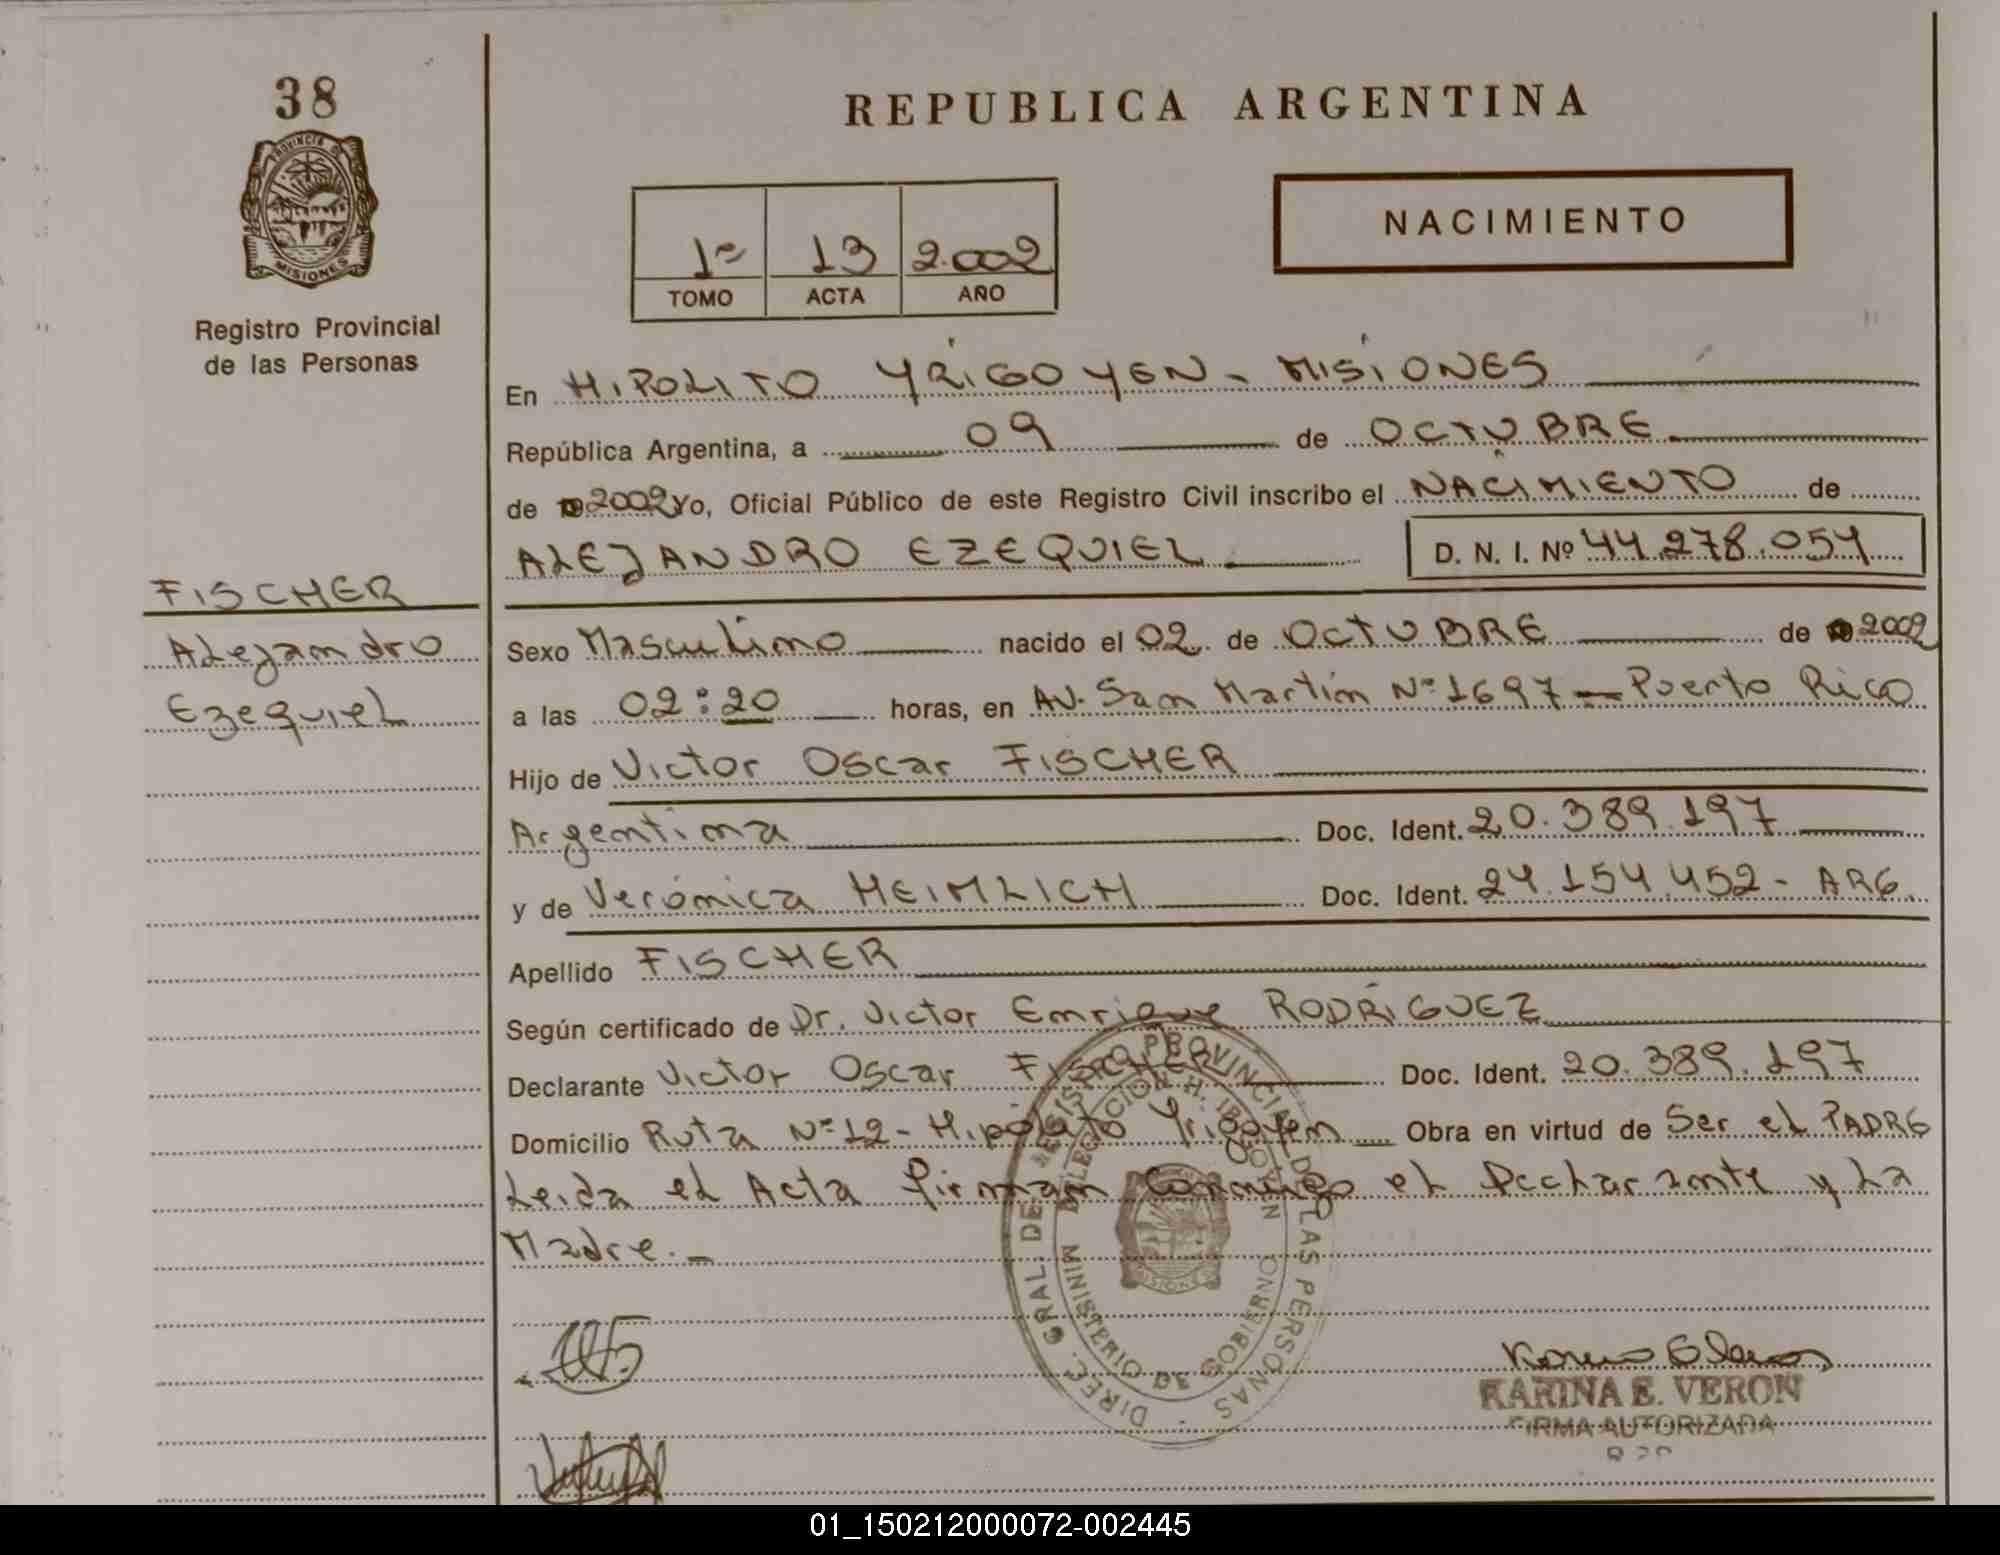 38
PROVINCIA DE
MISIONES
Registro Provincial
de las Personas
FISCHER
Alejandro
Ezequiel
REPUBLICA ARGENTINA
1º 13 2.002
TOMO ACTA AÑO
NACIMIENTO
En HIPOLITO YRIGOYEN - MISIONES
República Argentina, a 09 de OCTUBRE
de 2002 Yo, Oficial Público de este Registro Civil inscribo el NACIMIENTO de
ALEJANDRO EZEQUIEL D. N. I. Nº 44.278.054
Sexo Masculino nacido el 02 de OCTUBRE de 2002
a las 02:20 horas, en AV. San Martín Nº 1697 - Puerto Rico
Hijo de Victor Oscar FISCHER
Argentina Doc. Ident. 20.389.197
y de Verónica HEIMLICH Doc. Ident. 24.154.452 - ARG.
Apellido FISCHER
Según certificado de Dr. Victor Enrique RODRÍGUEZ
Declarante Victor Oscar FISCHER Doc. Ident. 20.389.197
Domicilio Ruta Nº 12 - Hipólito Yrigoyen Obra en virtud de Ser el PADRE
Leida el Acta firman Conmigo el Declarante y La
Madre. -
DIREC. GRAL. DE REGISTRO PROVINCIAL DE LAS PERSONAS
DELEGACION H. IRIGOYEN
MINISTERIO DE GOBIERNO
MISIONES
KARINA E. VERON
FIRMA AUTORIZADA
01_150212000072-002445